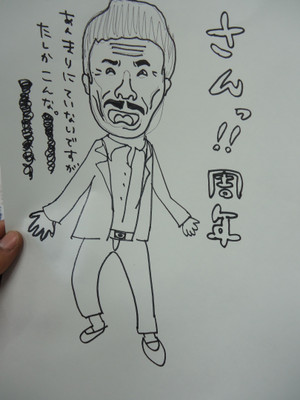 さんっ!!周年
あんまりにていないですが
たしかこんな。